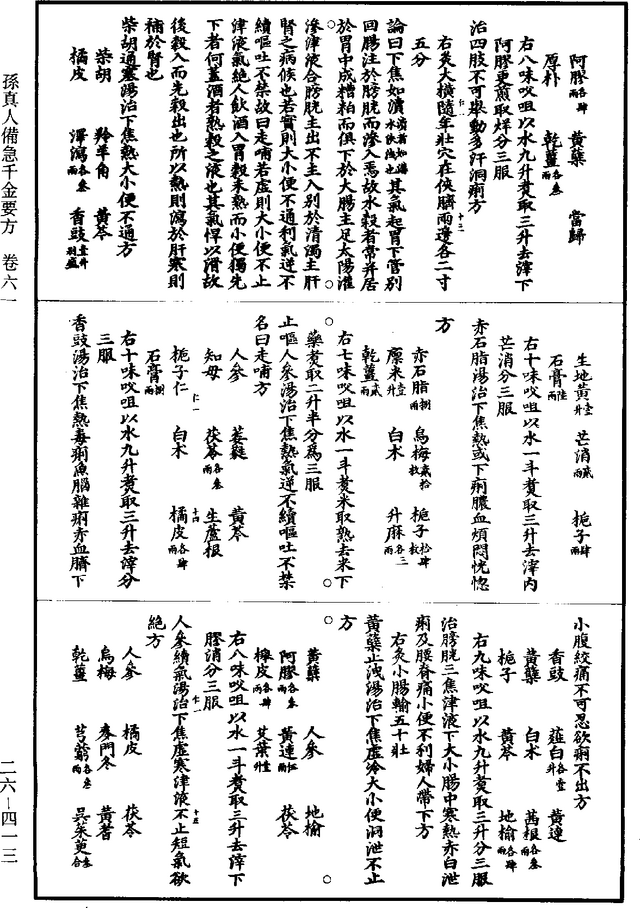 阿膠各肆兩 黃蘗 當歸
原朴 乾薑各叁兩
右八味㕮咀以水九升煑取三升去滓下
阿膠更煎取烊分三服
治四肢不可舉動多汗洞痢方
右灸大橫隨年壯穴在俠臍兩邊各二寸
五分
論曰下焦如瀆其氣起胃下管別
回腸注於膀胱而滲入焉故水穀者常并居
於胃中成糟粕而俱下於大腸主足太陽灌
滲津液合膀胱主出不主入別於清濁主肝
腎之病候也若實則大小便不通利氣逆不
續嘔吐不禁故曰走哺若虛則大小便不止
津液氣絕人飲酒入胃穀未熟而小便獨先
下者何蓋酒者熟穀之液也其氣悍以滑故
後穀入而先穀出也所以熱則瀉於肝寒則
補於腎也
柴胡通塞湯治下焦熱大小便不通方
柴胡 羚羊角 黃芩
橘皮 澤瀉各叁兩 香豉壹升別盛
生地黃壹升 芒消貳兩 梔子肆兩
石膏陸兩
右十味㕮咀以水一斗煑取三升去滓內
芒消分三服
赤石脂湯治下焦熱或下痢膿血煩悶恍惚
方
赤石脂捌兩 烏梅貳拾枚 梔子拾肆枚
廩米壹升 白术 升麻各三兩
乾薑貳兩
右七味㕮咀以水一斗煑米取熟去米下
藥煑取二升半分爲三服
止嘔人參湯治下焦熱氣逆不續嘔吐不禁
名曰走哺方
人參 萎蕤 黃芩
知母 茯苓各叁兩 生蘆根
梔子仁 白术 橘皮各肆兩
石膏捌兩
右十味㕮咀以水九升煑取三升去滓分
三服
香豉湯治下焦熱毒痢魚腦雜痢赤血臍下
小腹絞痛不可忍欲痢不出方
香豉 薤白各壹升 黃連
黃蘗 白术 茜根各叁兩
梔子 黃芩 地榆各肆兩
右九味㕮咀以水九升煑取三升分三服
治膀胱三焦津液下大小腸中寒熱赤白泄
痢及腰脊痛小便不利婦人帶下方
右灸小腸輸五十壯
黃蘗止洩湯治下焦虛冷大小便洞泄不止
方
黃蘗 人參 地榆
阿膠各叁兩 黃連伍兩 茯苓
櫸皮各肆兩 艾葉壹升
右八味㕮咀以水一斗煑取三升去滓下
膠消分三服
人參續氣湯治下焦虛寒津液不止短氣欲
絕方
人參 橘皮 茯苓
烏梅 麥門冬 黃耆
乾薑 芎藭各叁兩 吳茱萸叁合
孫真人備急千金要方 卷六一
二六—四一三